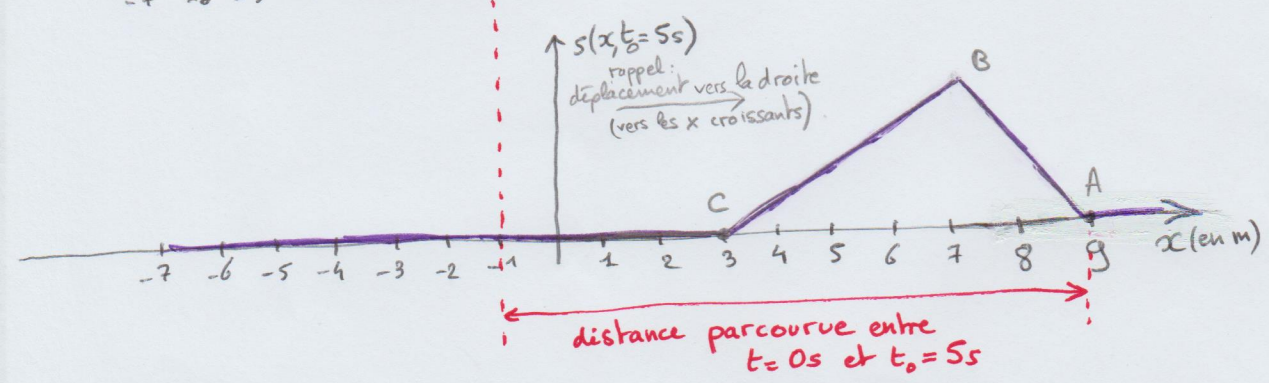 s(x,t₀=5s)
rappel:
déplacement vers la droite
(vers les x croissants)
B
A
C
-7 -6 -5 -4 -3 -2 -1 1 2 3 4 5 6 7 8 9
x(en m)
distance parcourue entre
t=0s et t₀=5s